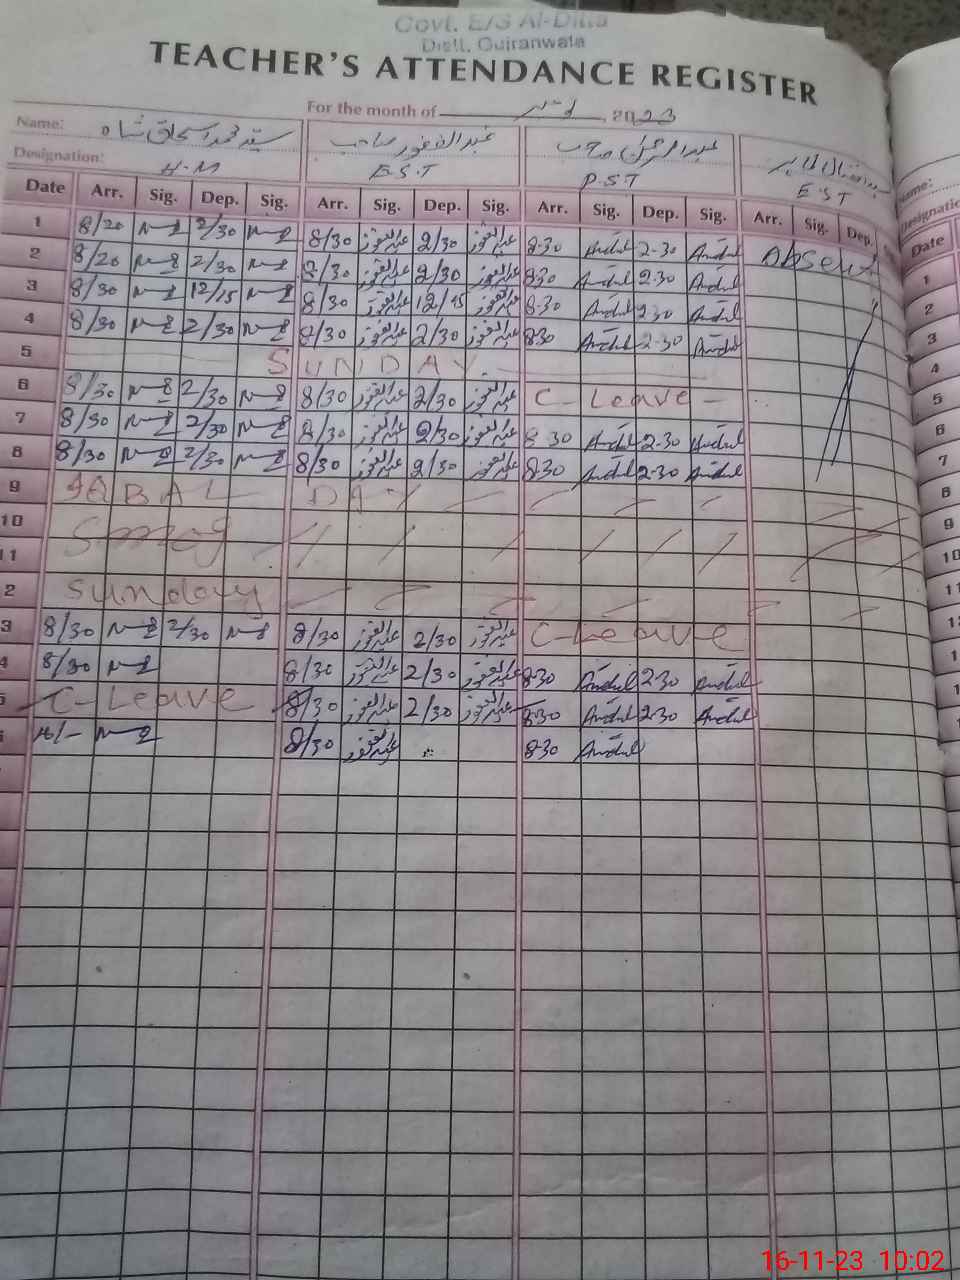 Govt. E/S Al-Ditta
Distt. Gujranwala
TEACHER'S ATTENDANCE REGISTER
For the month of نومبر, 2023
Name: سید محمد اسحاق شاہ عبدالغفور صاحب عبدالرحمٰن صاحب
Designation: H.M E.S.T P.S.T E S T
Date Arr. Sig. Dep. Sig. Arr. Sig. Dep. Sig. Arr. Sig. Dep. Sig. Arr. Sig. Dep.
1 8/20 2/30 8/30 عبدالغفور 2/30 عبدالغفور 8-30 Abdul 2-30 Abdul Absent
2 8/20 2/30 8/30 عبدالغفور 2/30 عبدالغفور 8-30 Abdul 2-30 Abdul
3 8/30 12/15 8/30 عبدالغفور 12/15 عبدالغفور 8-30 Abdul 2-30 Abdul
4 8/30 2/30 8/30 عبدالغفور 2/30 عبدالغفور 8-30 Abdul 2-30 Abdul
5 SUNDAY
6 8/30 2/30 8/30 عبدالغفور 2/30 عبدالغفور C - Leave -
7 8/30 2/30 8/30 عبدالغفور 2/30 عبدالغفور 8-30 Abdul 2-30 Abdul
8 8/30 2/30 8/30 عبدالغفور 2/30 عبدالغفور 8-30 Abdul 2-30 Abdul
9 IQBAL DAY
10 Smog
11
2 Sunday
3 8/30 2/30 8/30 عبدالغفور 2/30 عبدالغفور C-Leave
4 8/30 8/30 عبدالغفور 2/30 عبدالغفور 8-30 Abdul 2-30 Abdul
C-Leave 8/30 عبدالغفور 2/30 عبدالغفور 8-30 Abdul 2-30 Abdul
8/30 عبدالغفور 8-30 Abdul
Name:
Designatio
Date
1
2
3
4
5
6
7
8
9
10
11
16-11-23 10:02